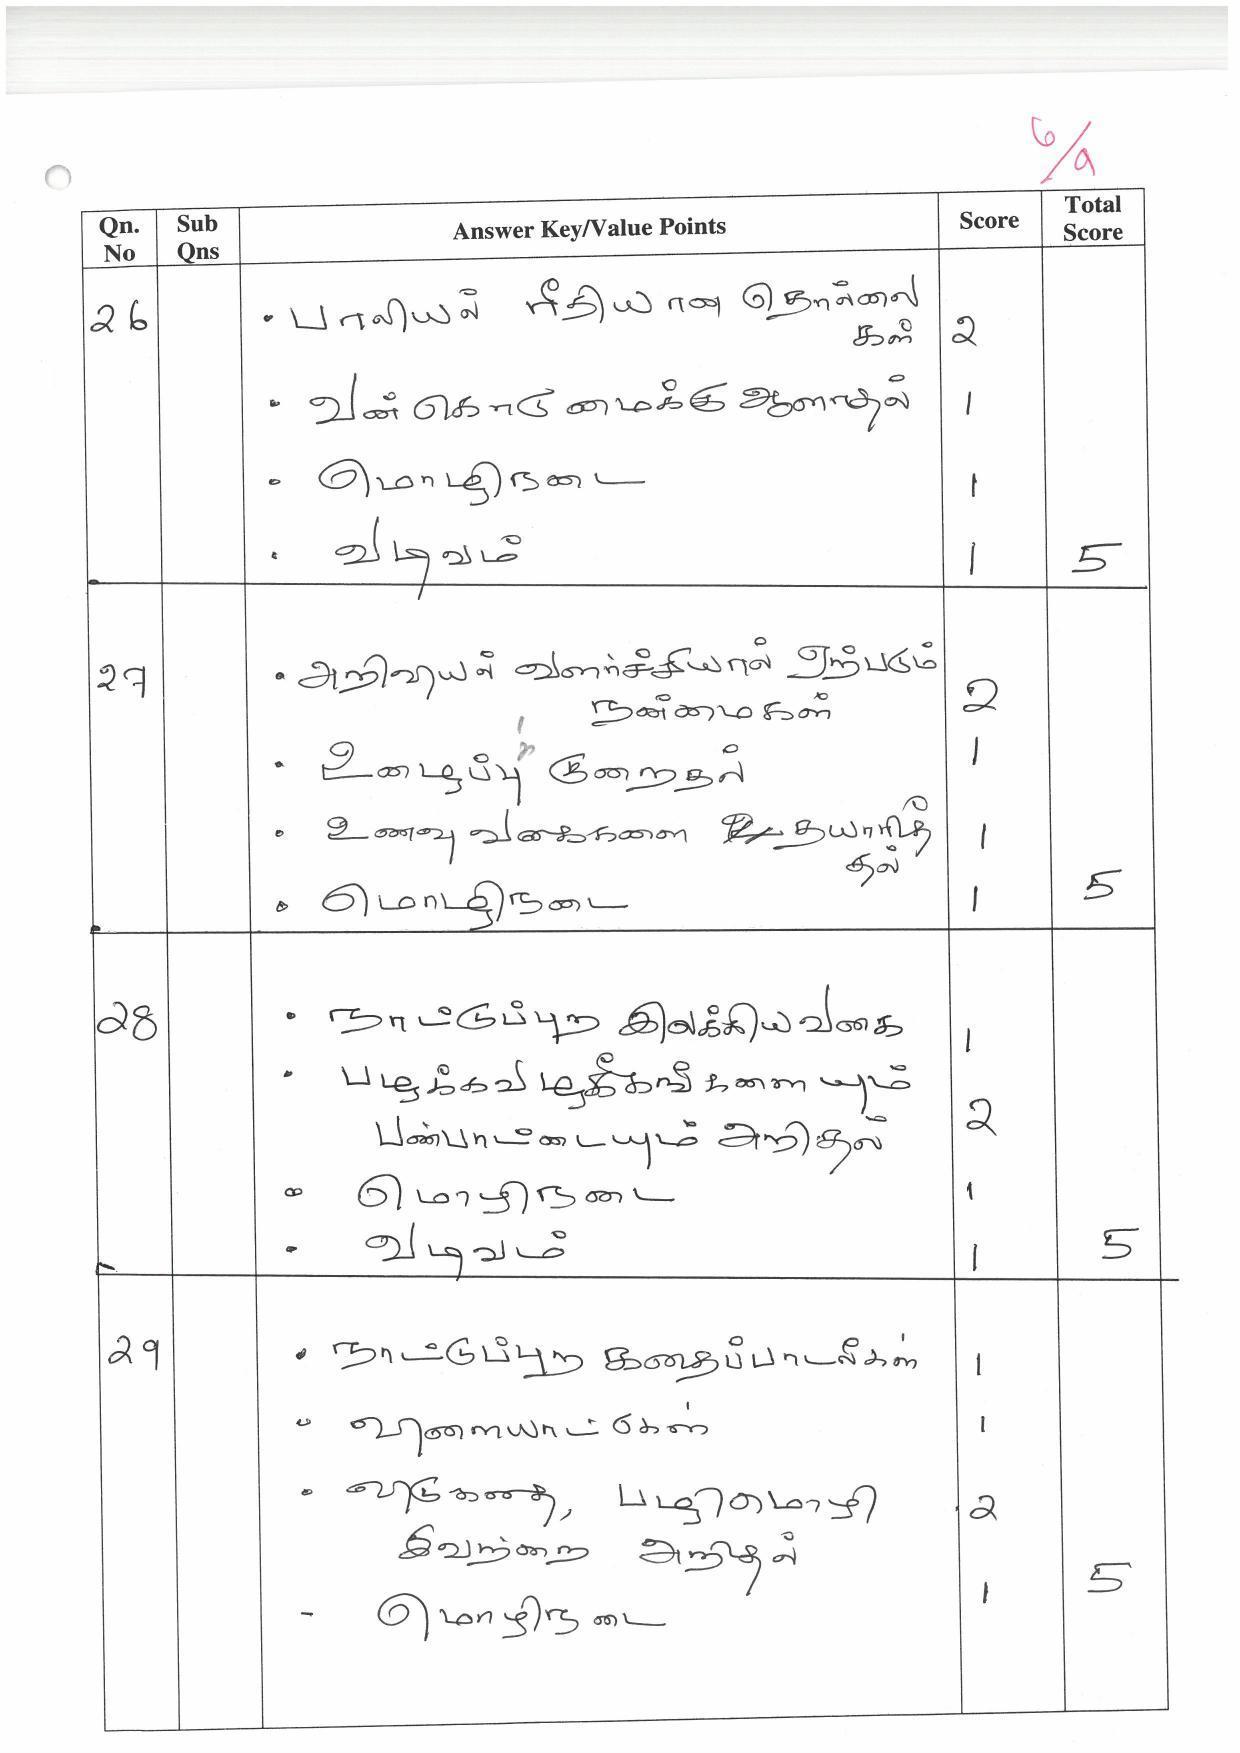 6/9
Qn. No | Sub Qns | Answer Key/Value Points | Score | Total Score
26 • பாலியல் ரீதியான தொல்லை
கள் 2
• வன்கொடுமைக்கு ஆளாதல் 1
• மொழிநடை 1
• வடிவம் 1 5
27 • அறிவியல் வளர்ச்சியால் ஏற்படும்
நன்மைகள் 2
• உழைப்பு குறைதல் 1
• உணவு வகைகளை தயாரித்
தல் 1
• மொழிநடை 1 5
28 • நாட்டுப்புற இலக்கிய வகை 1
• பழக்கவழக்கங்களையும்
பண்பாட்டையும் அறிதல் 2
• மொழிநடை 1
• வடிவம் 1 5
29 • நாட்டுப்புற கதைப்பாடல்கள் 1
• விளையாட்டுகள் 1
• விடுகதை, பழமொழி
இவற்றை அறிதல் 2
- மொழிநடை 1 5